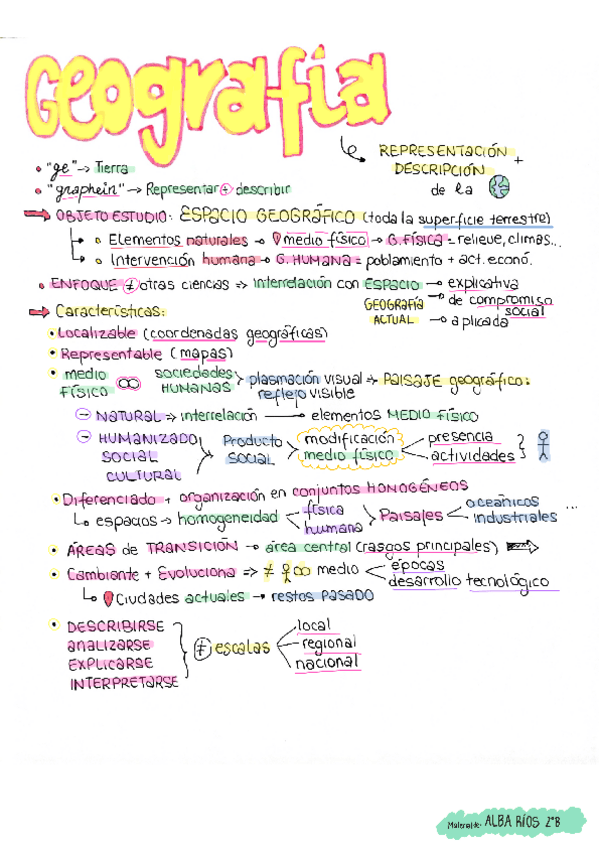 Geografía
REPRESENTACIÓN +
DESCRIPCIÓN
de la
• "ge" → Tierra
• "graphein" → Representar + describir
→ OBJETO ESTUDIO: ESPACIO GEOGRÁFICO (toda la superficie terrestre)
→ • Elementos naturales → medio físico → G. FÍSICA = relieve, climas...
→ • Intervención humana → G. HUMANA = poblamiento + act. econó.
• ENFOQUE ≠ otras ciencias => interrelación con ESPACIO → explicativa
GEOGRAFÍA ACTUAL → de compromiso social
→ aplicada
→ Características:
• Localizable (coordenadas geográficas)
• Representable (mapas)
• medio FÍSICO ∞ sociedades HUMANAS > plasmación visual => PAISAJE geográfico:
reflejo visible
- NATURAL => interrelación → elementos MEDIO FÍSICO
- HUMANIZADO
SOCIAL
CULTURAL
Producto SOCIAL
modificación medio físico
presencia
actividades
• Diferenciado + organización en conjuntos HOMOGÉNEOS
↳ espacios => homogeneidad < física humana > Paisajes < oceánicos industriales ...
• ÁREAS de TRANSICIÓN → área central (rasgos principales)
• Cambiante + Evoluciona => ≠ ∞ medio < épocas
desarrollo tecnológico
↳ Ciudades actuales → restos PASADO
• DESCRIBIRSE
ANALIZARSE
EXPLICARSE
INTERPRETARSE
≠ escalas
local
regional
nacional
Material de: ALBA RÍOS 2ºB